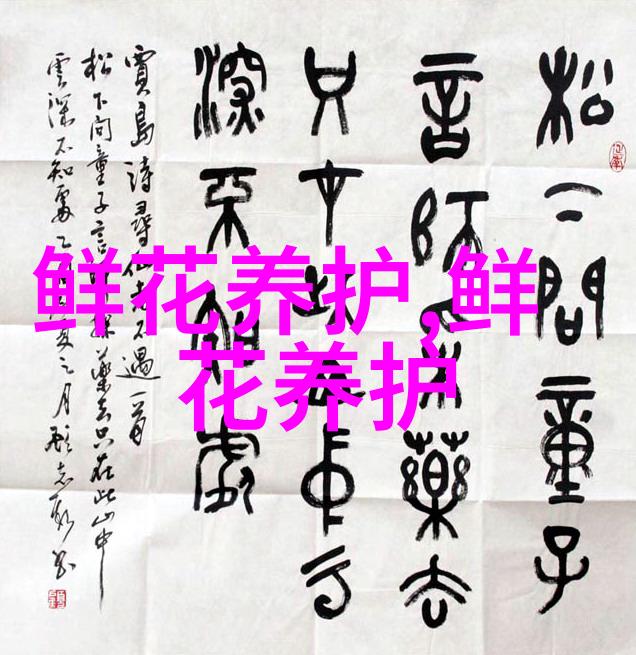 松下問童子
言師采藥去
只才此山中云
深不知處
賈島詩尋者不遇一首
松下问童子言师採藥去只在此山中
雲深不知處
鲜花养护,鲜
花养护